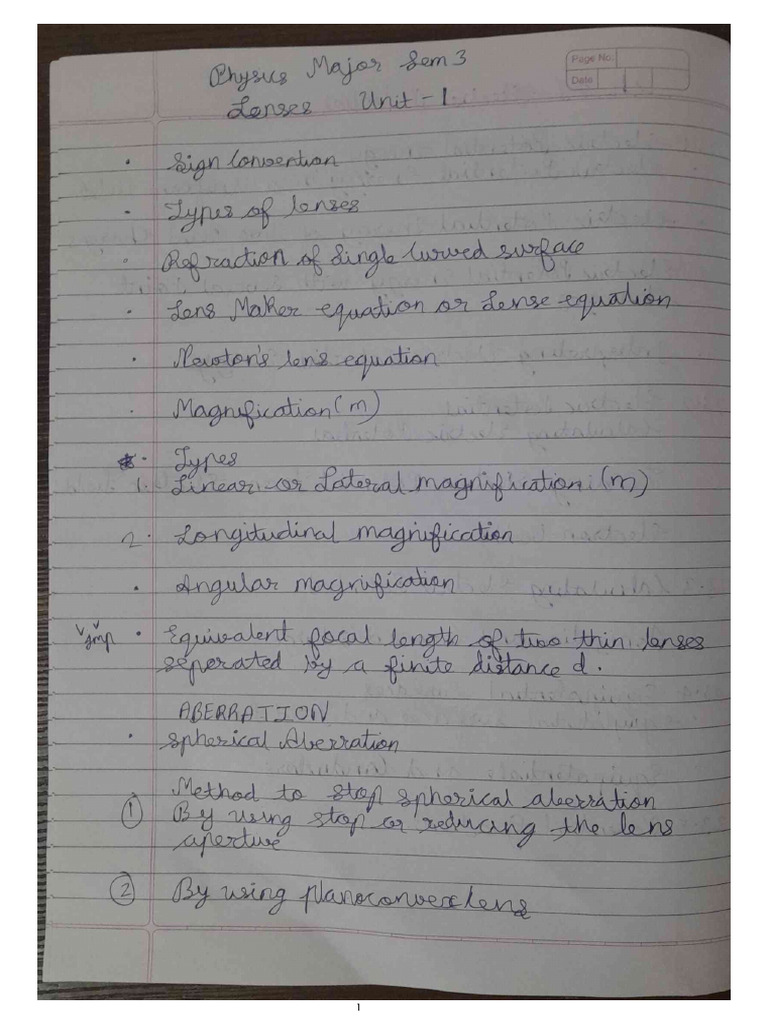 Physics Major Sem 3
Page No.
Date
Lenses Unit - 1
• Sign Convention
• Types of lenses
• Refraction of Single Curved surface
• Lens Maker equation or Lense equation
• Newton's lens equation
• Magnification (m)
• Types
1. Linear or Lateral magnification (m)
2. Longitudinal magnification
• Angular magnification
Imp • Equivalent focal length of two thin lenses
seperated by a finite distance d.
ABERRATION
• Spherical Aberration
Method to stop spherical aberration
① By using stop or reducing the lens
aperture
② By using planoconvex lens
1